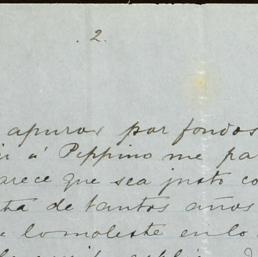 . 2.
apuros por fondos
á Peppino me pa
arece que sea justo co
ta de tantos años
lo moleste en lo